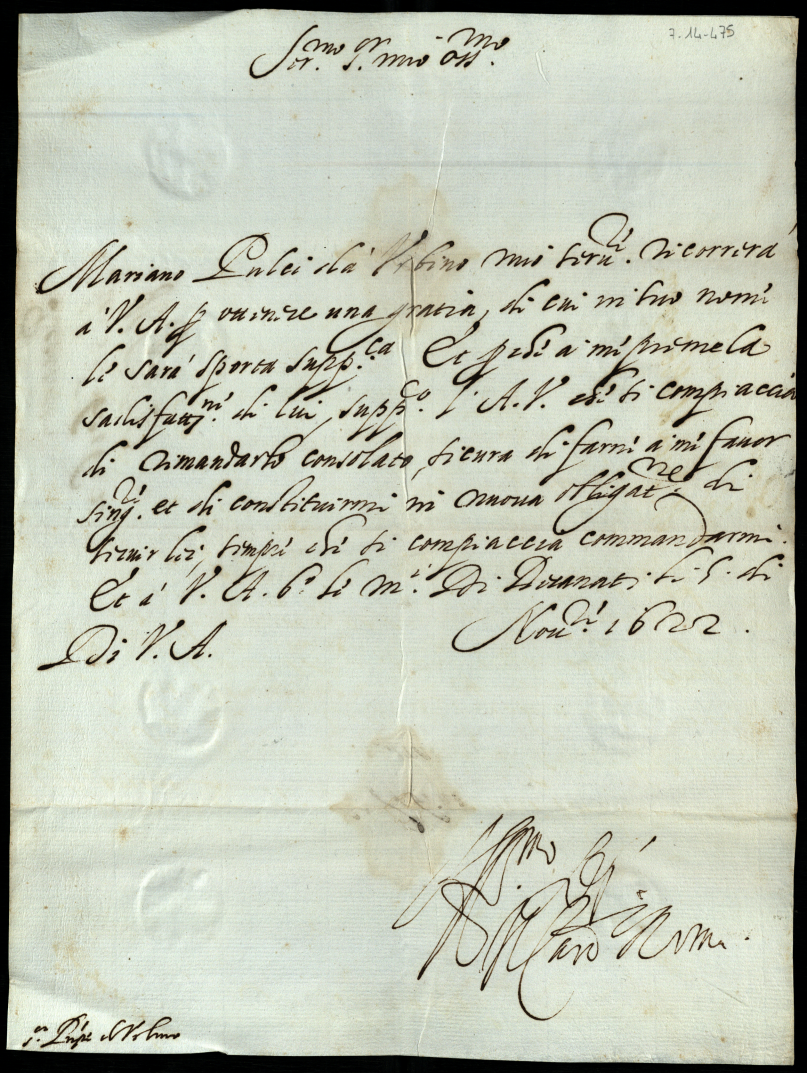 7-14-475
Ser.mo s.r mio oss.mo
Mariano Pulci da Urbino mio seru.re ricorrerà
à V. A. p ottenere una gratia, di cui in suo nome
le sarà sporta supp.ca Et p che a me preme la
sadisfatt.ne di lui, supp.co l'A. V. che si compiaccia
di rimandarlo consolato, sicura di farne a me fauor
sing.re et di constituirmi in nuoua obligat.ne di
seruir lei, sempre che si compiaccia commandarmi.
Et à V. A. b.o le m.i Di Recanati li 5. di
Di V. A. Nou.re 1622.
Aff.mo
Il Card
s.r Prpe d'Urbino